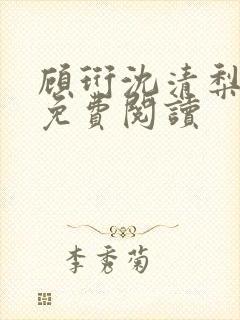 顾衍沈清梨
免費閱讀
李秀菊